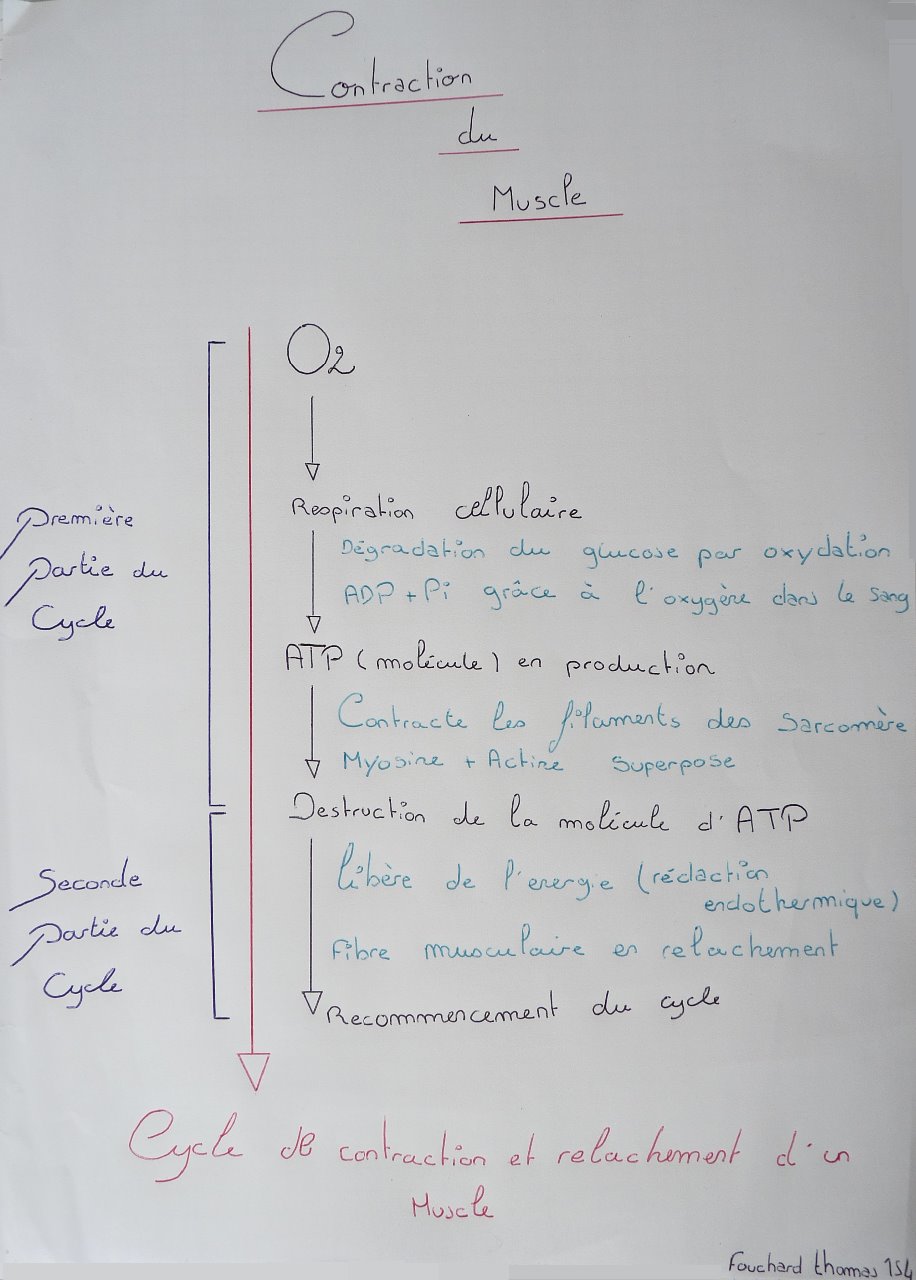 Contraction
du
Muscle
O2
Première
Partie du
Cycle
Respiration cellulaire
Dégradation du glucose par oxydation
ADP + Pi grâce à l'oxygène dans le sang
ATP (molécule) en production
Contracte les filaments des Sarcomère
Myosine + Actine Superpose
Destruction de la molécule d'ATP
Seconde
Partie du
Cycle
libère de l'energie (réaction
endothermique)
Fibre musculaire en relachement
Recommencement du cycle
Cycle de contraction et relachement d'un
Muscle
Fouchard thomas 1S4